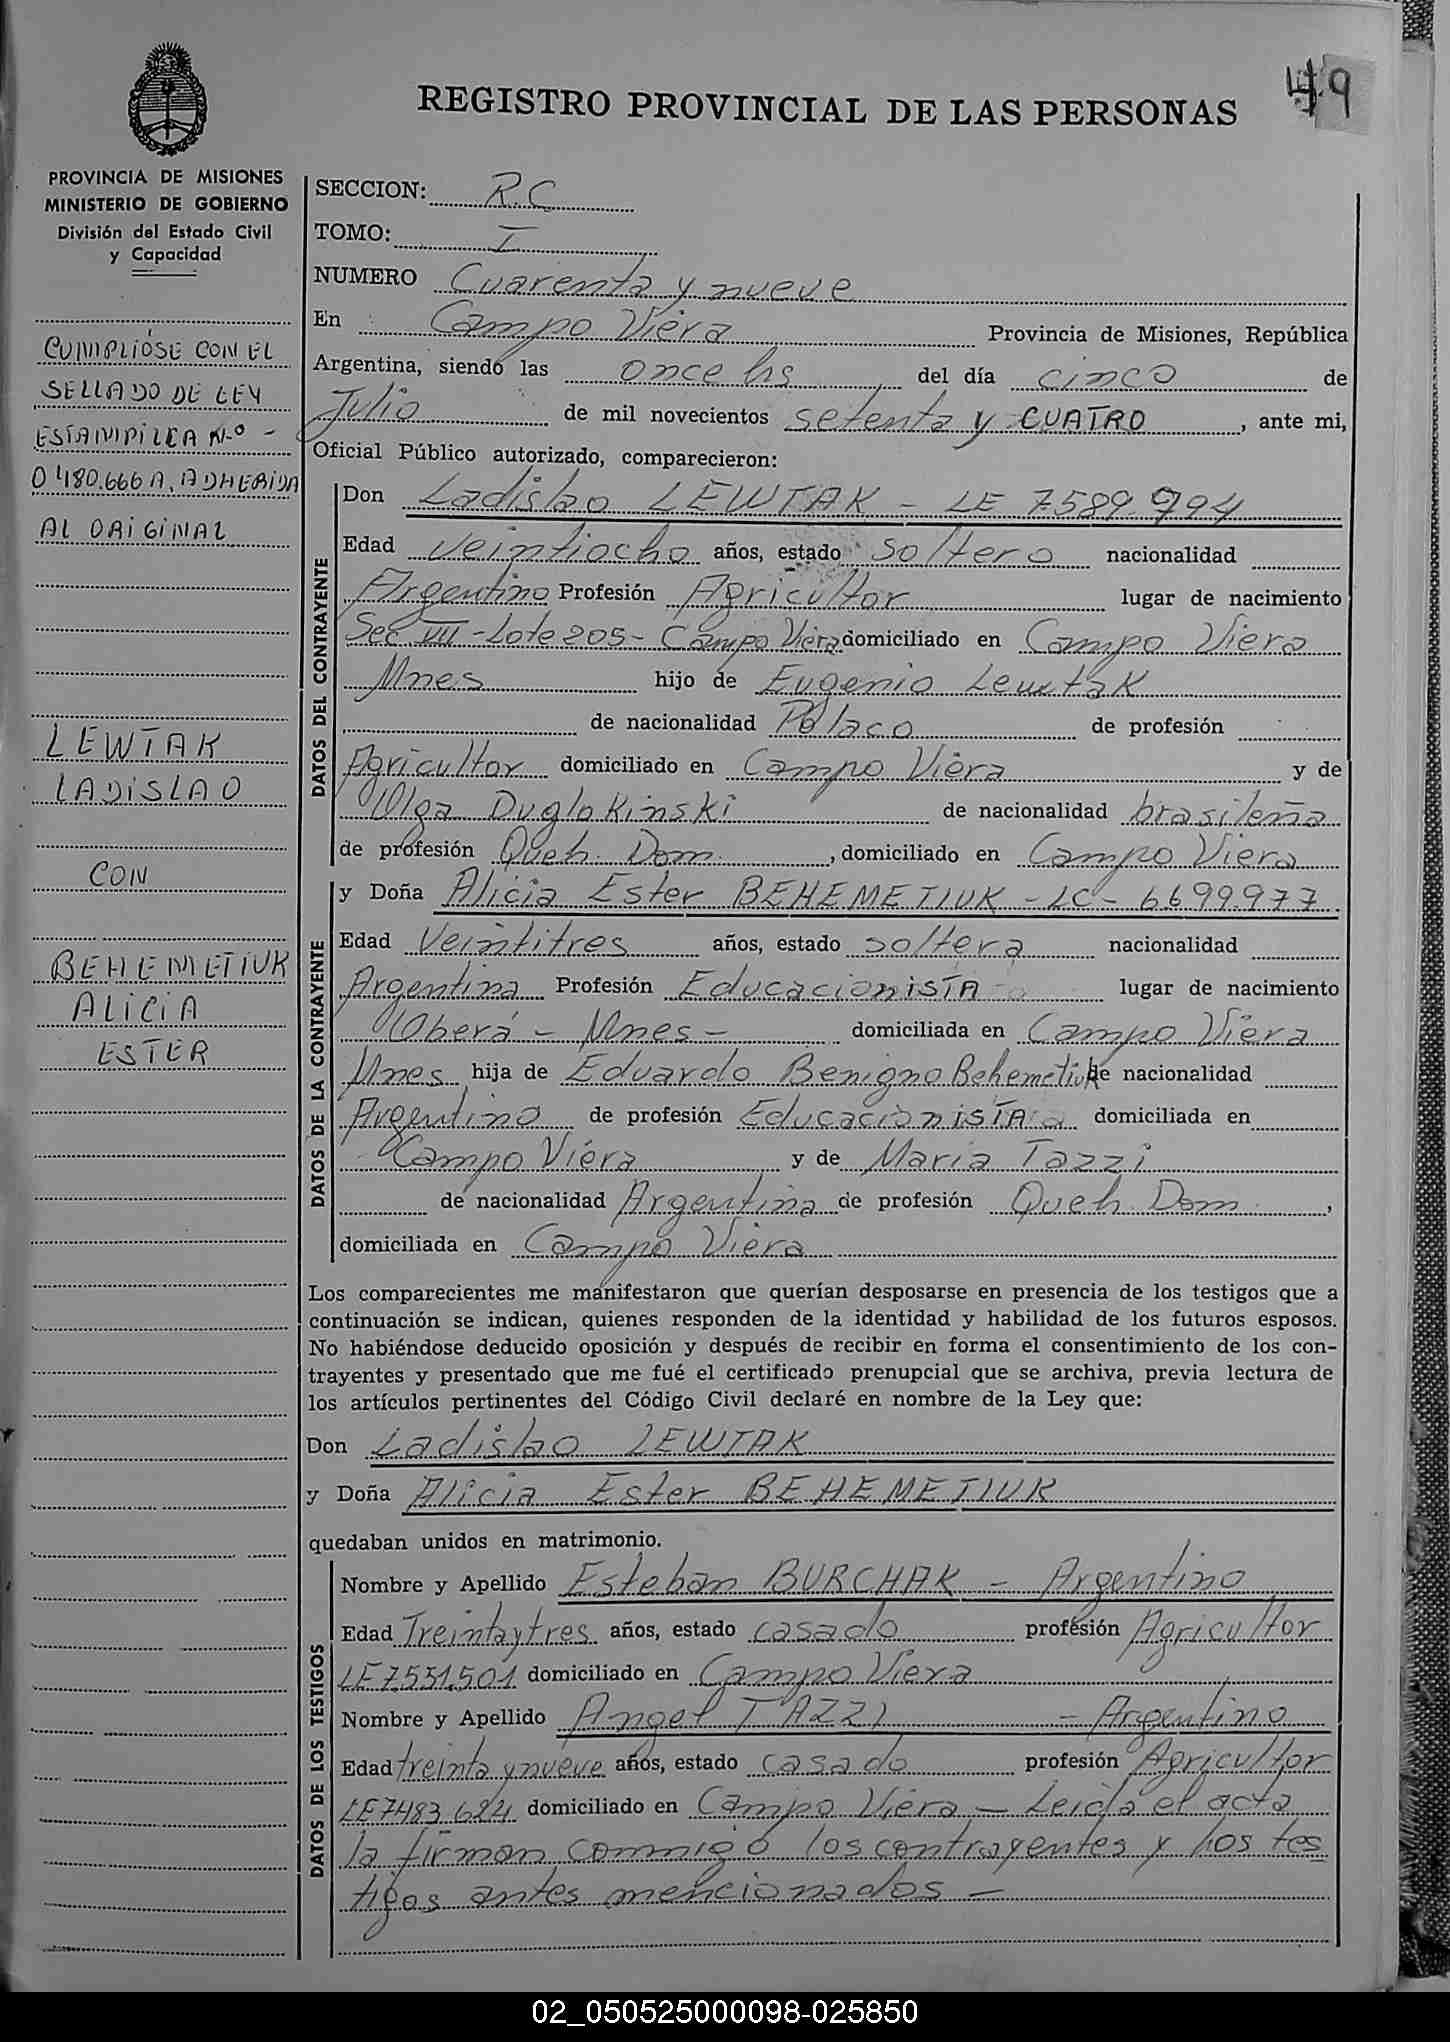 49
REGISTRO PROVINCIAL DE LAS PERSONAS
PROVINCIA DE MISIONES
MINISTERIO DE GOBIERNO
División del Estado Civil
y Capacidad
CUMPLIÓSE CON EL
SELLADO DE LEY
ESTAMPILLA Nº -
0480.666 A, ADHERIDA
AL ORIGINAL
LEWTAK
LADISLAO
CON
BEHEMETIUK
ALICIA
ESTER
SECCION: R.C
TOMO: I
NUMERO Cuarenta y nueve
En Campo Viera Provincia de Misiones, República
Argentina, siendo las once hs del día cinco de
Julio de mil novecientos setenta y CUATRO, ante mi,
Oficial Público autorizado, comparecieron:
DATOS DEL CONTRAYENTE
Don Ladislao LEWTAK - LE 7589.794
Edad veintiocho años, estado soltero nacionalidad
Argentino Profesión Agricultor lugar de nacimiento
Sec VII - Lote 205 - Campo Viera domiciliado en Campo Viera
Mnes hijo de Eugenio Lewtak
de nacionalidad Polaco de profesión
Agricultor domiciliado en Campo Viera y de
Olga Duglokinski de nacionalidad brasileña
de profesión Queh. Dom. , domiciliado en Campo Viera
DATOS DE LA CONTRAYENTE
y Doña Alicia Ester BEHEMETIUK - LC - 6699.977
Edad Veintitres años, estado soltera nacionalidad
Argentina Profesión EducacionisTA lugar de nacimiento
Oberá - Mnes - domiciliada en Campo Viera
Mnes hija de Eduardo Benigno Behemetiuk de nacionalidad
Argentino de profesión EducacionisTA domiciliada en
Campo Viera y de Maria Tazzi
de nacionalidad Argentina de profesión Queh. Dom. ,
domiciliada en Campo Viera
Los comparecientes me manifestaron que querían desposarse en presencia de los testigos que a
continuación se indican, quienes responden de la identidad y habilidad de los futuros esposos.
No habiéndose deducido oposición y después de recibir en forma el consentimiento de los con-
trayentes y presentado que me fué el certificado prenupcial que se archiva, previa lectura de
los artículos pertinentes del Código Civil declaré en nombre de la Ley que:
Don Ladislao LEWTAK
y Doña Alicia Ester BEHEMETIUK
quedaban unidos en matrimonio.
DATOS DE LOS TESTIGOS
Nombre y Apellido Esteban BURCHAK - Argentino
Edad Treintaytres años, estado casado profesión Agricultor
LE7.551.501 domiciliado en Campo Viera
Nombre y Apellido Angel TAZZI - Argentino
Edad treinta y nueve años, estado casado profesión Agricultor
LE7483.624 domiciliado en Campo Viera - Leida el acta
la firman conmigo los contrayentes y los tes
tigos antes mencionados -
02_050525000098-025850